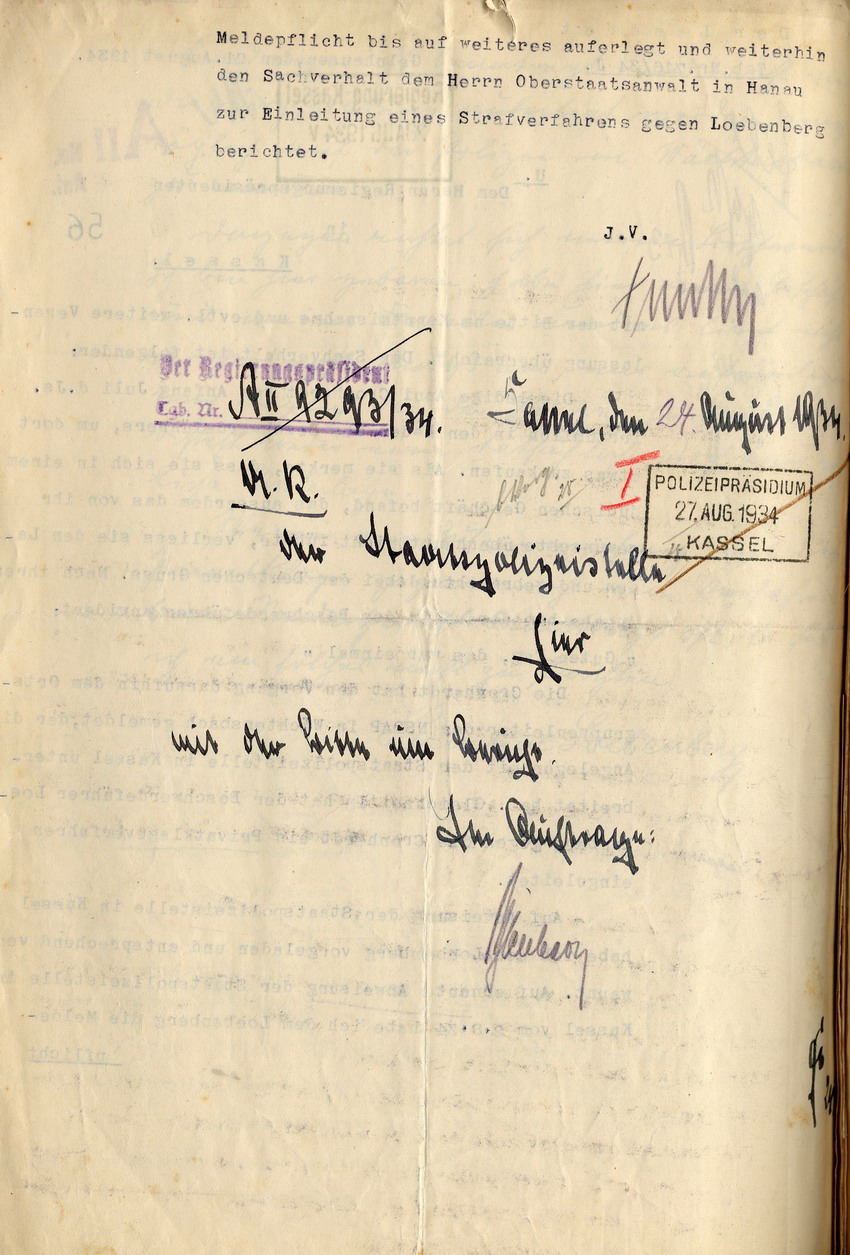 Meldepflicht bis auf weiteres auferlegt und weiterhin
den Sachverhalt dem Herrn Oberstaatsanwalt in Hanau
zur Einleitung eines Strafverfahrens gegen Loebenberg
berichtet.
J.V.
Der Regierungspräsident
Tgb. Nr. A II 9293/34. Cassel, den 24. August 1934.
U. R.
I
POLIZEIPRÄSIDIUM
27. AUG. 1934
KASSEL
der Staatspolizeistelle
hier
mit der Bitte um Bericht.
Im Auftrage: